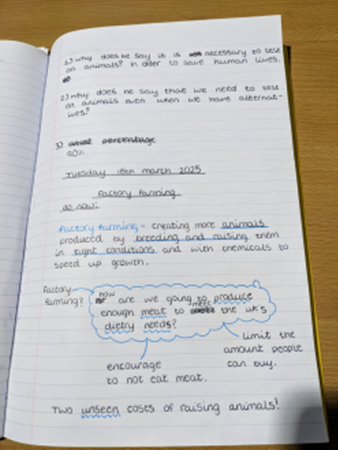 1.) why does he say it is necessary to test
on animals? In order to save human lives.
2.) why does he say that we need to test
on animals even when we have alternat-
ives?
3)
90%
Tuesday 18th march 2025
Factory farming
do now:
Factory farming - creating more animals
produced by breeding and raising them
in tight conditions and with chemicals to
speed up growth.
Factory
farming?
how are we going to produce
enough meat to meet the uk's
dietry needs?
limit the
amount people
can buy.
encourage
to not eat meat.
Two unseen costs of raising animals!